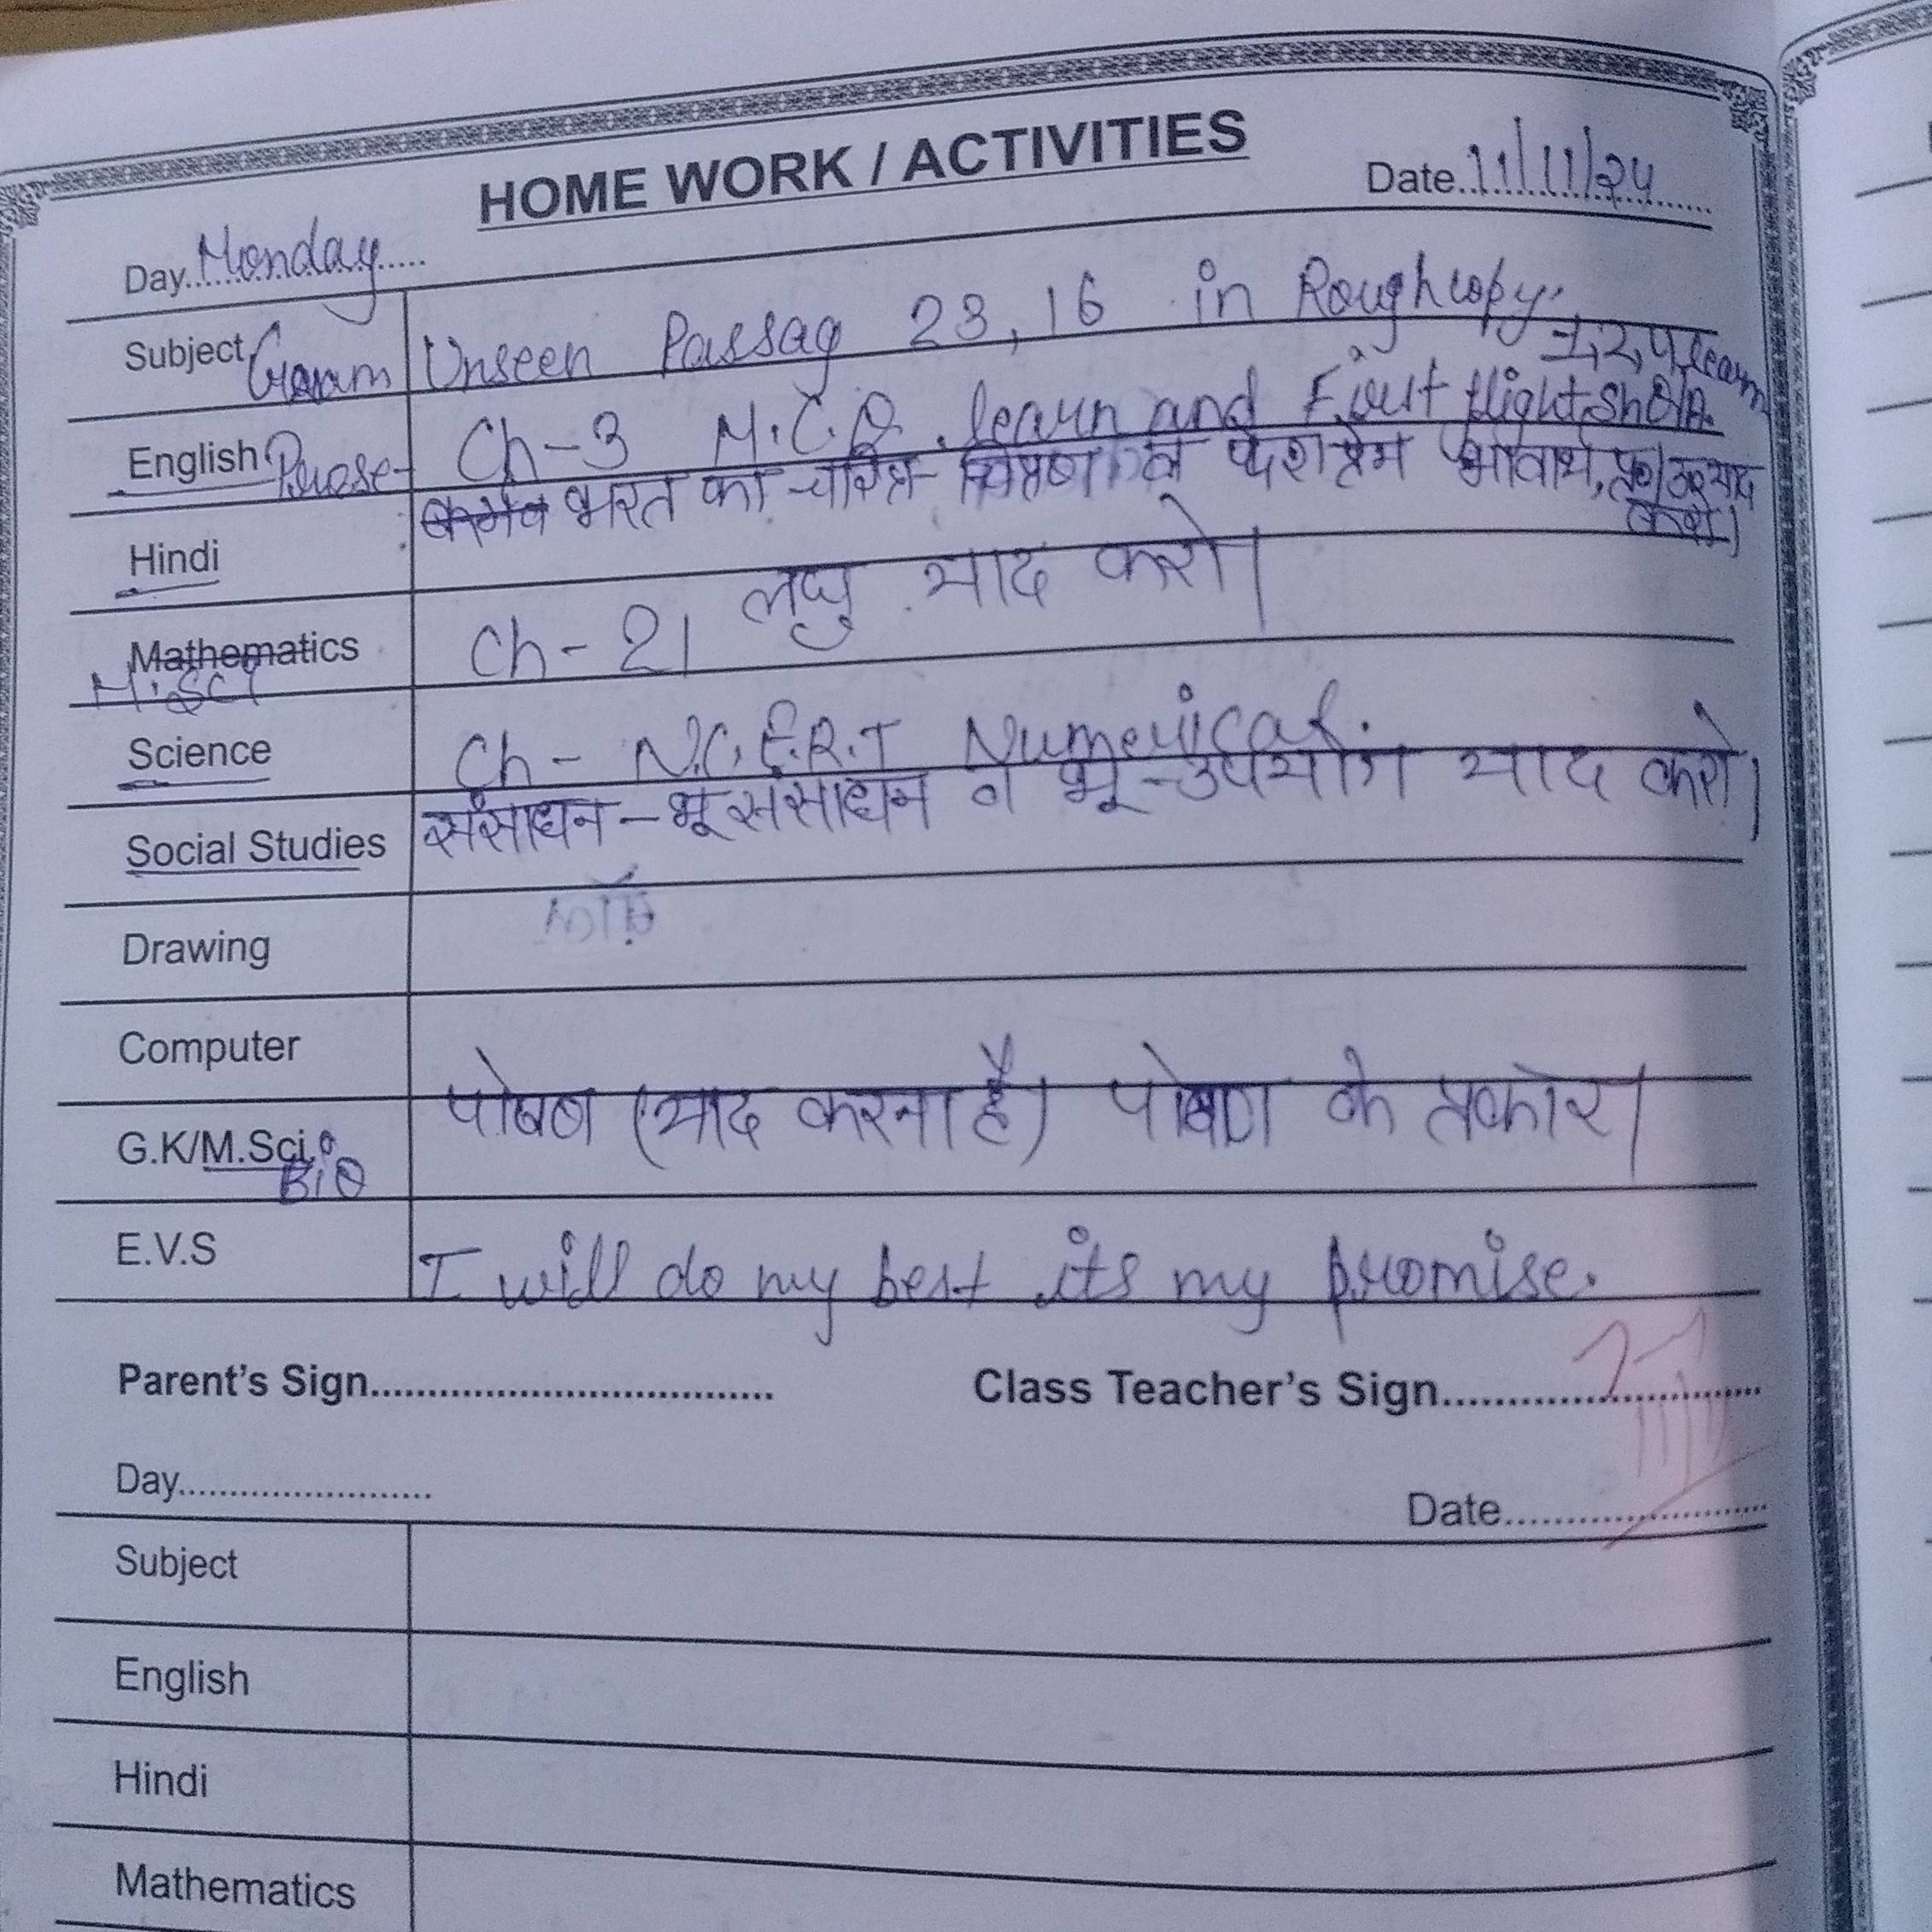 HOME WORK / ACTIVITIES
Day Monday Date 11/11/24
Subject Gram Unseen Passag 23, 16 in Rough copy.
1, 2, 4 learn
English Prose - Ch-3 M.C.Q. learn and First flight Sh Q/A.
Hindi भरत का चरित्र- चित्रण व देशप्रेम भावार्थ, याद
करो।
Mathematics
M.Sci Ch-21 लघु याद करो।
Science Ch- N.C.E.R.T Numerical.
Social Studies संसाधन - भू संसाधन व भू-उपयोग याद करो।
Drawing
Computer
G.K/M.Sci. पोषण (याद करना है) पोषण के प्रकार।
Bio
E.V.S I will do my best its my promise.
Parent's Sign Class Teacher's Sign
11/11
Day Date
Subject
English
Hindi
Mathematics